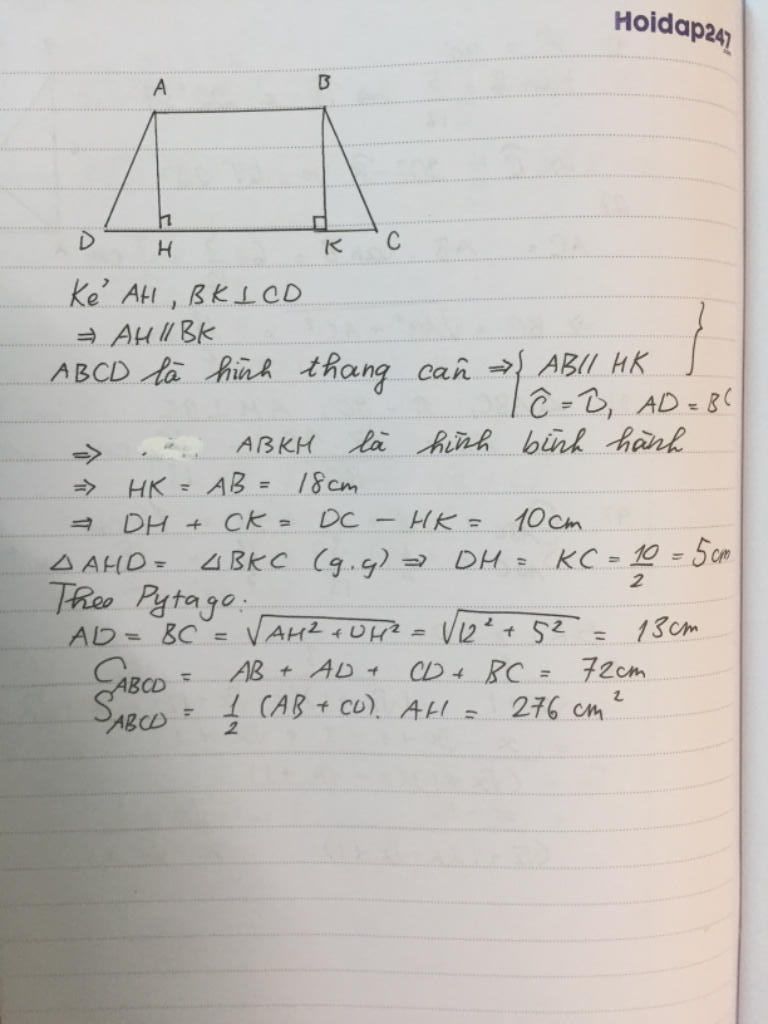 Hoidap247
A B
D H K C
Kẻ AH, BK ⊥ CD
⇒ AH // BK
ABCD là hình thang cân ⇒ { AB // HK }
Ĉ = D̂, AD = BC
⇒ ABKH là hình bình hành
⇒ HK = AB = 18cm
⇒ DH + CK = DC - HK = 10cm
△AHD = △BKC (g.g) ⇒ DH = KC = 10/2 = 5cm
Theo Pytago:
AD = BC = √(AH² + DH²) = √(12² + 5²) = 13cm
C_ABCD = AB + AD + CD + BC = 72cm
S_ABCD = 1/2 (AB + CD). AH = 276 cm²